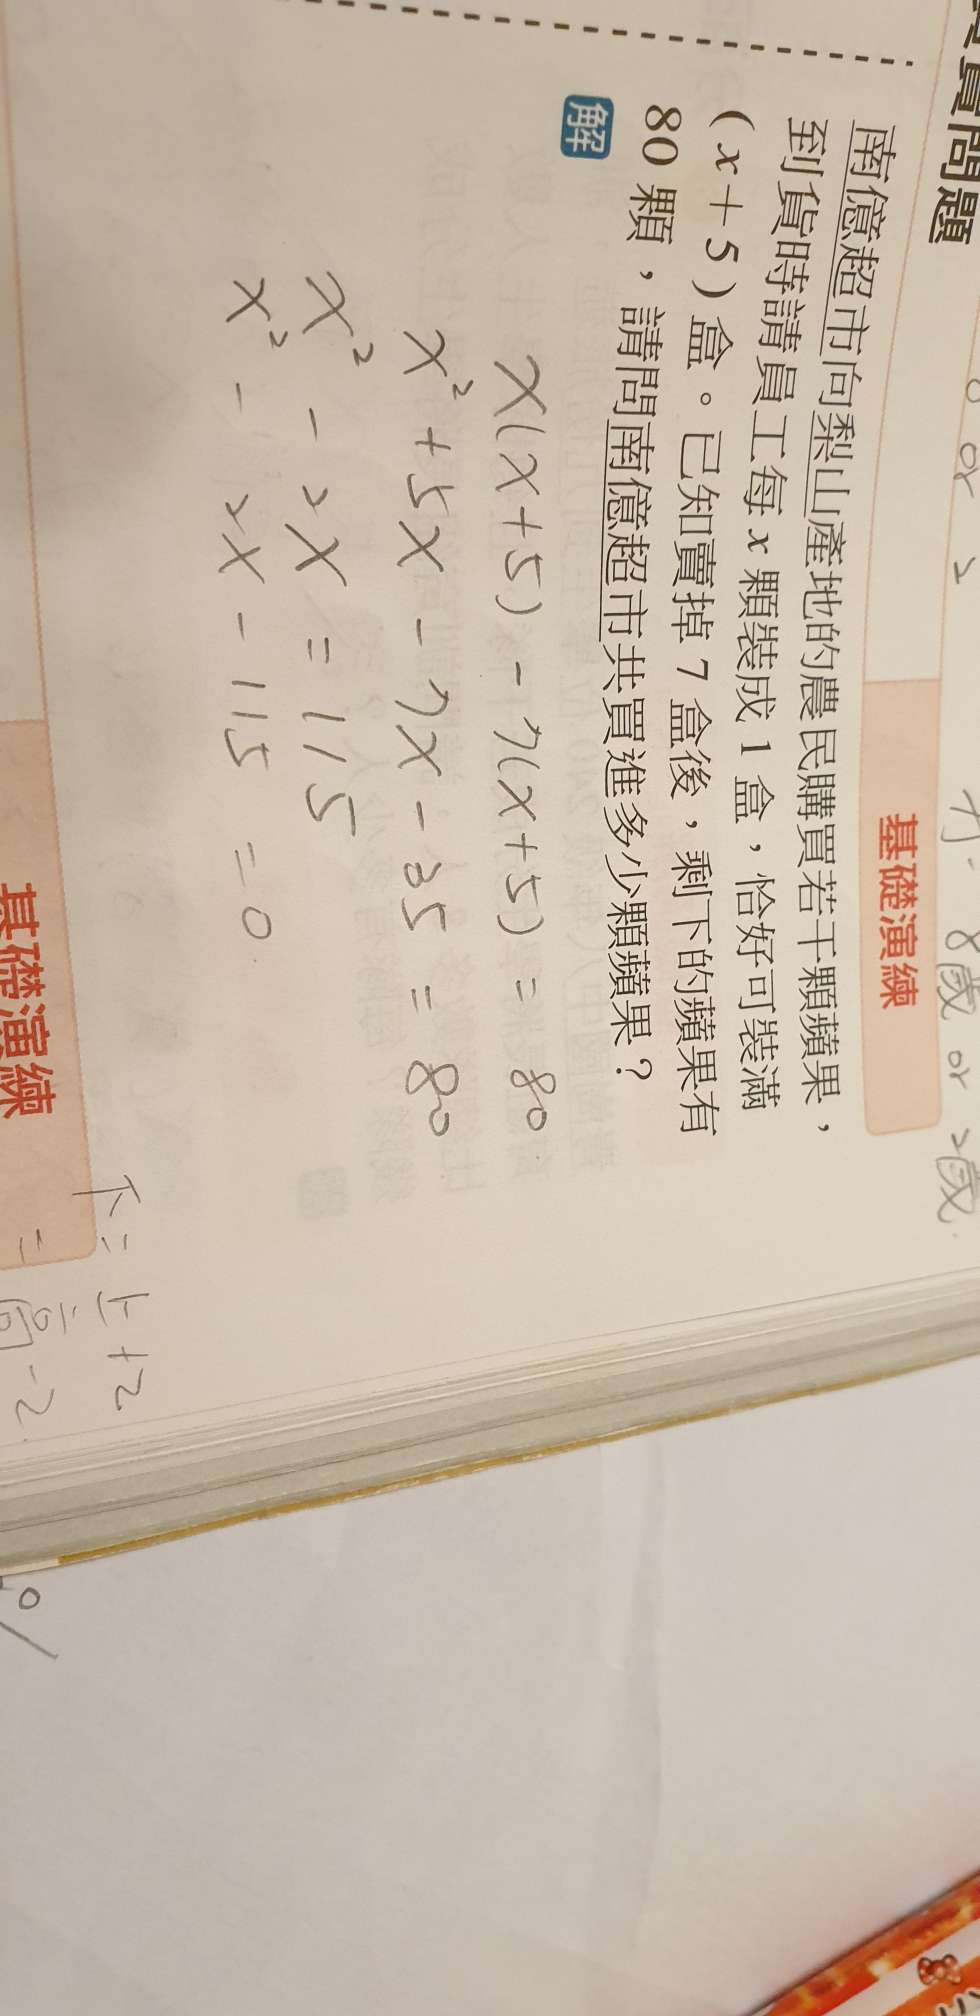 問題
0 or 2
方:8歲 or 2歲.
基礎演練
南億超市向梨山產地的農民購買若干顆蘋果,
到貨時請員工每x顆裝成1盒,恰好可裝滿
(x+5)盒。已知賣掉7盒後,剩下的蘋果有
80顆,請問南億超市共買進多少顆蘋果?
解
x(x+5)-7(x+5)=80
x²+5x-7x-35=80
x²-2x=115
x²-2x-115=0
下=上+2
基礎演練